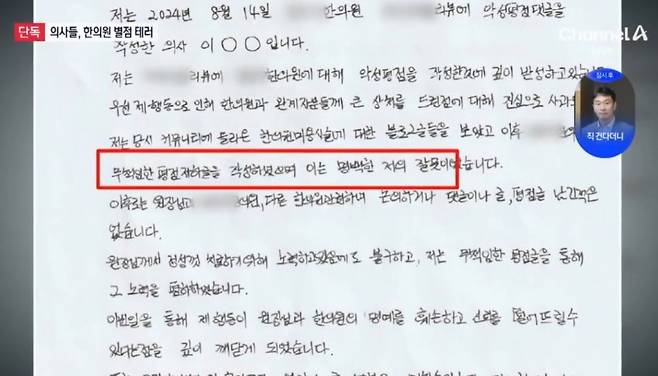 단독 의사들, 한의원 별점 테러
Channel A
잠시 후
직 건다더니
저는 2024년 8월 14일 한의원 리뷰에 악성평점댓글을
작성한 의사 이○○입니다.
저는 리뷰에 한의원에 대해 악성평점을 작성한것에 깊이 반성하고있습
우선 제 행동으로 인해 한의원과 관계자분들께 큰 상처를 드린점에 대해 진심으로 사과
저는 당시 커뮤니티에 올라온 한의원미용시술에 대한 블로그글들을 보았고 이후 한의
무책임한 평점저하글을 작성하였으며 이는 명백한 저의 잘못이었습니다.
이후로는 원장님과 의원, 다른 한의원관련하여 논의하거나 댓글이나 글, 평점글 남긴적은
없습니다.
원장님께서 정성껏 치료하기위해 노력하고있음에도 불구하고, 저는 무책임한 평점글을 통해
그 노력을 폄하하였습니다.
이번일을 통해 제 행동이 원장님과 한의원의 명예를 훼손하고 신뢰를 떨어뜨릴수
있다는점을 깊이 깨닫게 되었습니다.